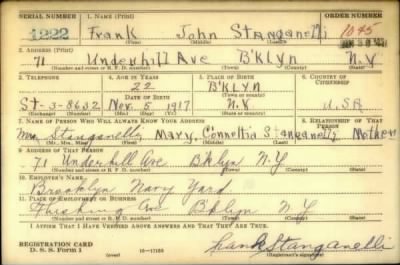 SERIAL NUMBER 1. NAME (Print) ORDER NUMBER
1222 Frank John Stanganelli 1045
(First) (Middle) (Last)
2. ADDRESS (Print)
71 Underhill Ave B'klyn N.Y
(Number and street or R. F. D. number) (Town) (County) (State)
3. TELEPHONE 4. AGE IN YEARS 5. PLACE OF BIRTH 6. COUNTRY OF CITIZENSHIP
22 B'KLYN
DATE OF BIRTH (Town or county)
St-3-8632 Nov. 5 1917 N.Y U.S.A
(Exchange) (Number) (Mo.) (Day) (Yr.) (State or country)
7. NAME OF PERSON WHO WILL ALWAYS KNOW YOUR ADDRESS 8. RELATIONSHIP OF THAT PERSON
Mrs Stanganelli Mary, Stanganelli Mother
(Mr., Mrs., Miss) (First) (Middle) (Last)
9. ADDRESS OF THAT PERSON
71 Underhill Ave Bklyn N.Y
(Number and street or R. F. D. number) (Town) (County) (State)
10. EMPLOYER'S NAME
Brooklyn Navy Yard
11. PLACE OF EMPLOYMENT OR BUSINESS
Ave B'klyn N.Y
(Number and street or R. F. D. number) (Town) (County) (State)
I AFFIRM THAT I HAVE VERIFIED ABOVE ANSWERS AND THAT THEY ARE TRUE.
REGISTRATION CARD
D. S. S. Form 1 16—17105 Frank Stanganelli
(over) (Registrant's signature)